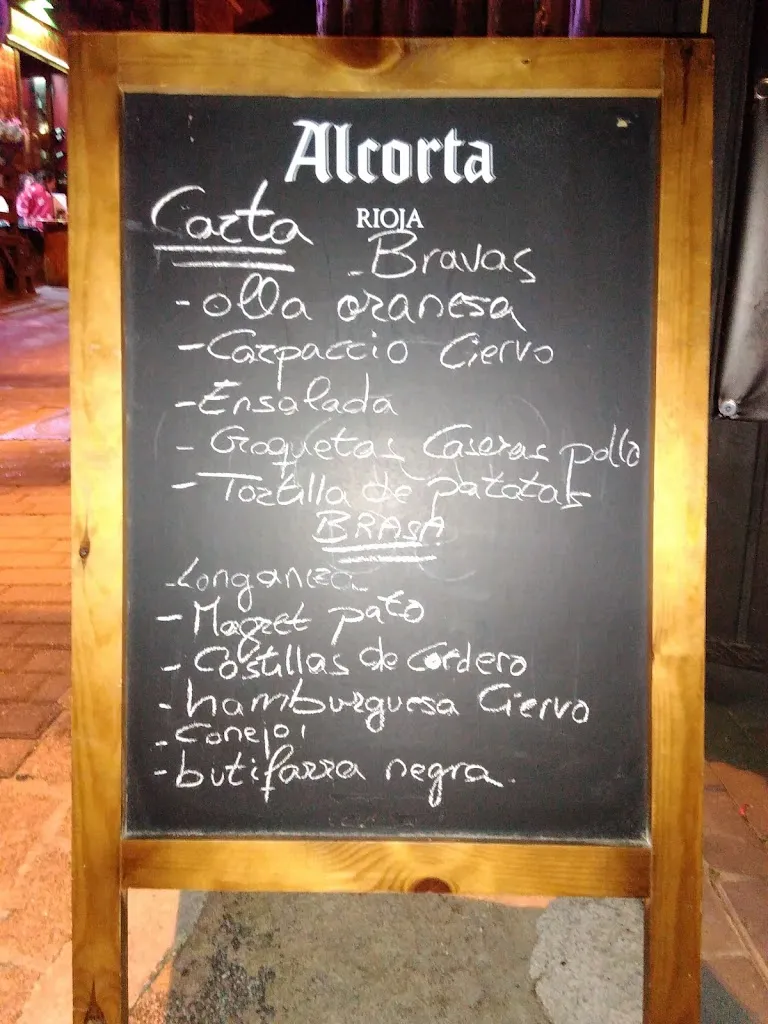 Alcorta
RIOJA
Carta
- Bravas
- olla aranesa
- Carpaccio Ciervo
- Ensalada
- Croquetas Caseras pollo
- Tortilla de patatas
BRASA
- Longaniza
- Magret pato
- Costillas de Cordero
- hamburguesa Ciervo
- Conejo
- butifarra negra.